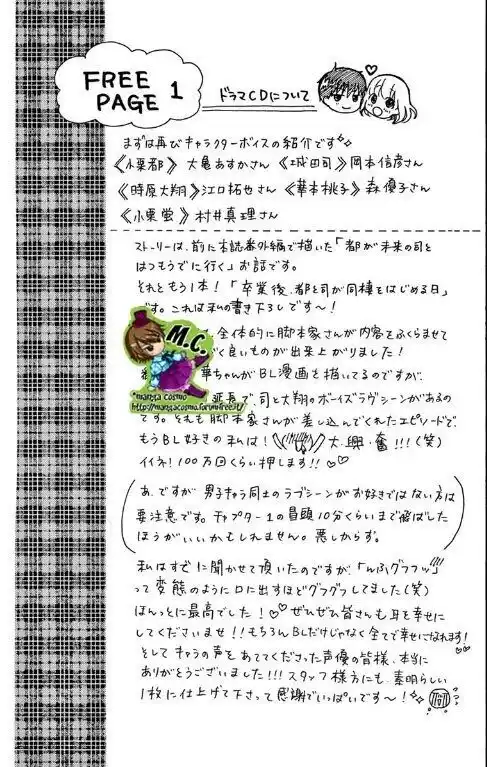 FREE
PAGE 1
ドラマCDについて
まずは再びキャラクターボイスの紹介です
《小栗都》大亀あすかさん《城田司》岡本信彦さん
《時原大翔》江口拓也さん《華本桃子》森優子さん
《小栗蛍》村井真理さん
ストーリーは、前に本誌番外編で描いた「都が未来の司と
はつもうでに行く」お話です。
それともう1本!「卒業後、都と司が同棲をはじめる日」
です。これは私の書き下ろしです〜!
全体的に脚本家さんが内容をふくらませて
良いものが出来上がりました!
華ちゃんがBL漫画を描いてるのですが、
延長で、司と大翔のボーイズラブシーンがあるの
です。それも脚本家さんが差し込んでくれたエピソードで、
もうBL好きの私は! 大・興・奮!!!(笑)
イイネ!100万回くらい押します!!♡♡
あ、ですが男子キャラ同士のラブシーンがお好きではない方は
要注意です。チャプター1の冒頭10分くらいまで飛ばした
ほうがいいかもしれません。悪しからず。
私はすでに聞かせて頂いたのですが「んふグフフッ」
って変態のように口に出すほどグフグフしてました(笑)
ほんっとに最高でした!♡♡ぜひぜひ皆さんも耳を幸せに
してくださいませ!!もちろんBLだけじゃなく全てで幸せになれます!
そしてキャラの声をあててくださった声優の皆様、本当に
ありがとうございました!!!スタッフ様方にも、素晴らしい
1枚に仕上げて下さって感謝でいっぱいです〜!
M.C.
*manga cosmo*
http://mangacosmo.forumfree.it/